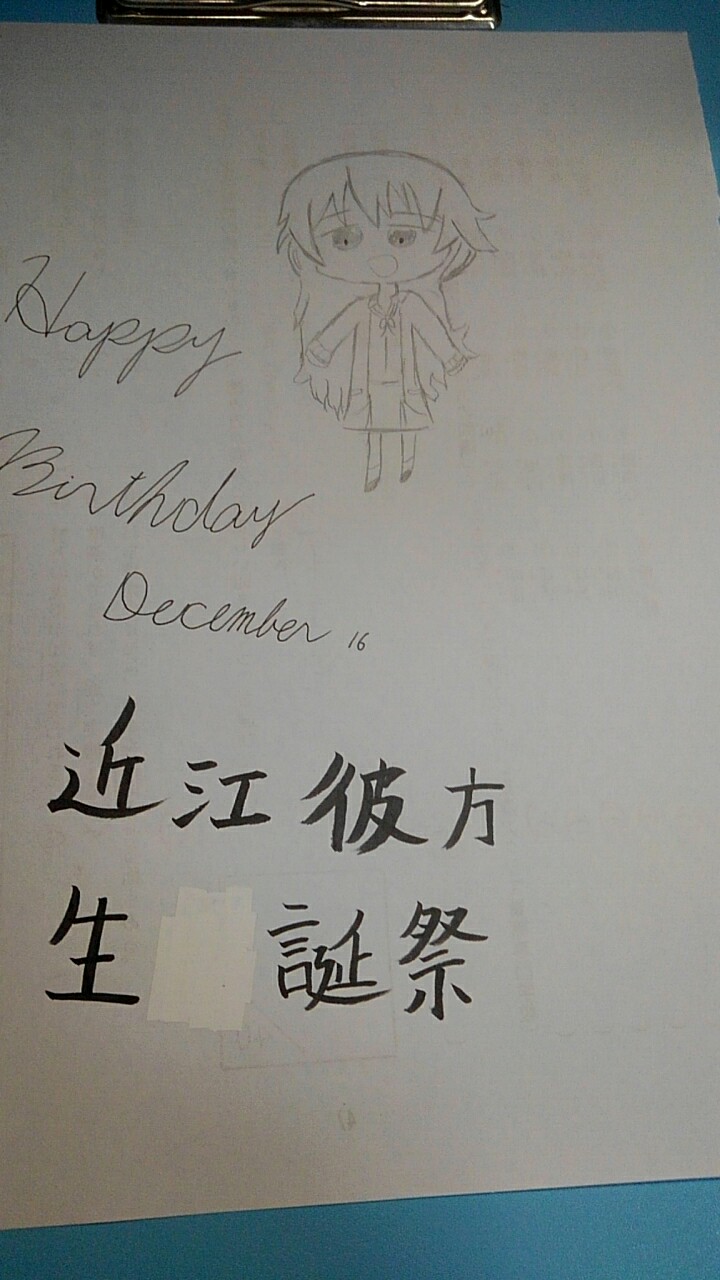 Happy
Birthday
December 16
近江彼方
生誕祭